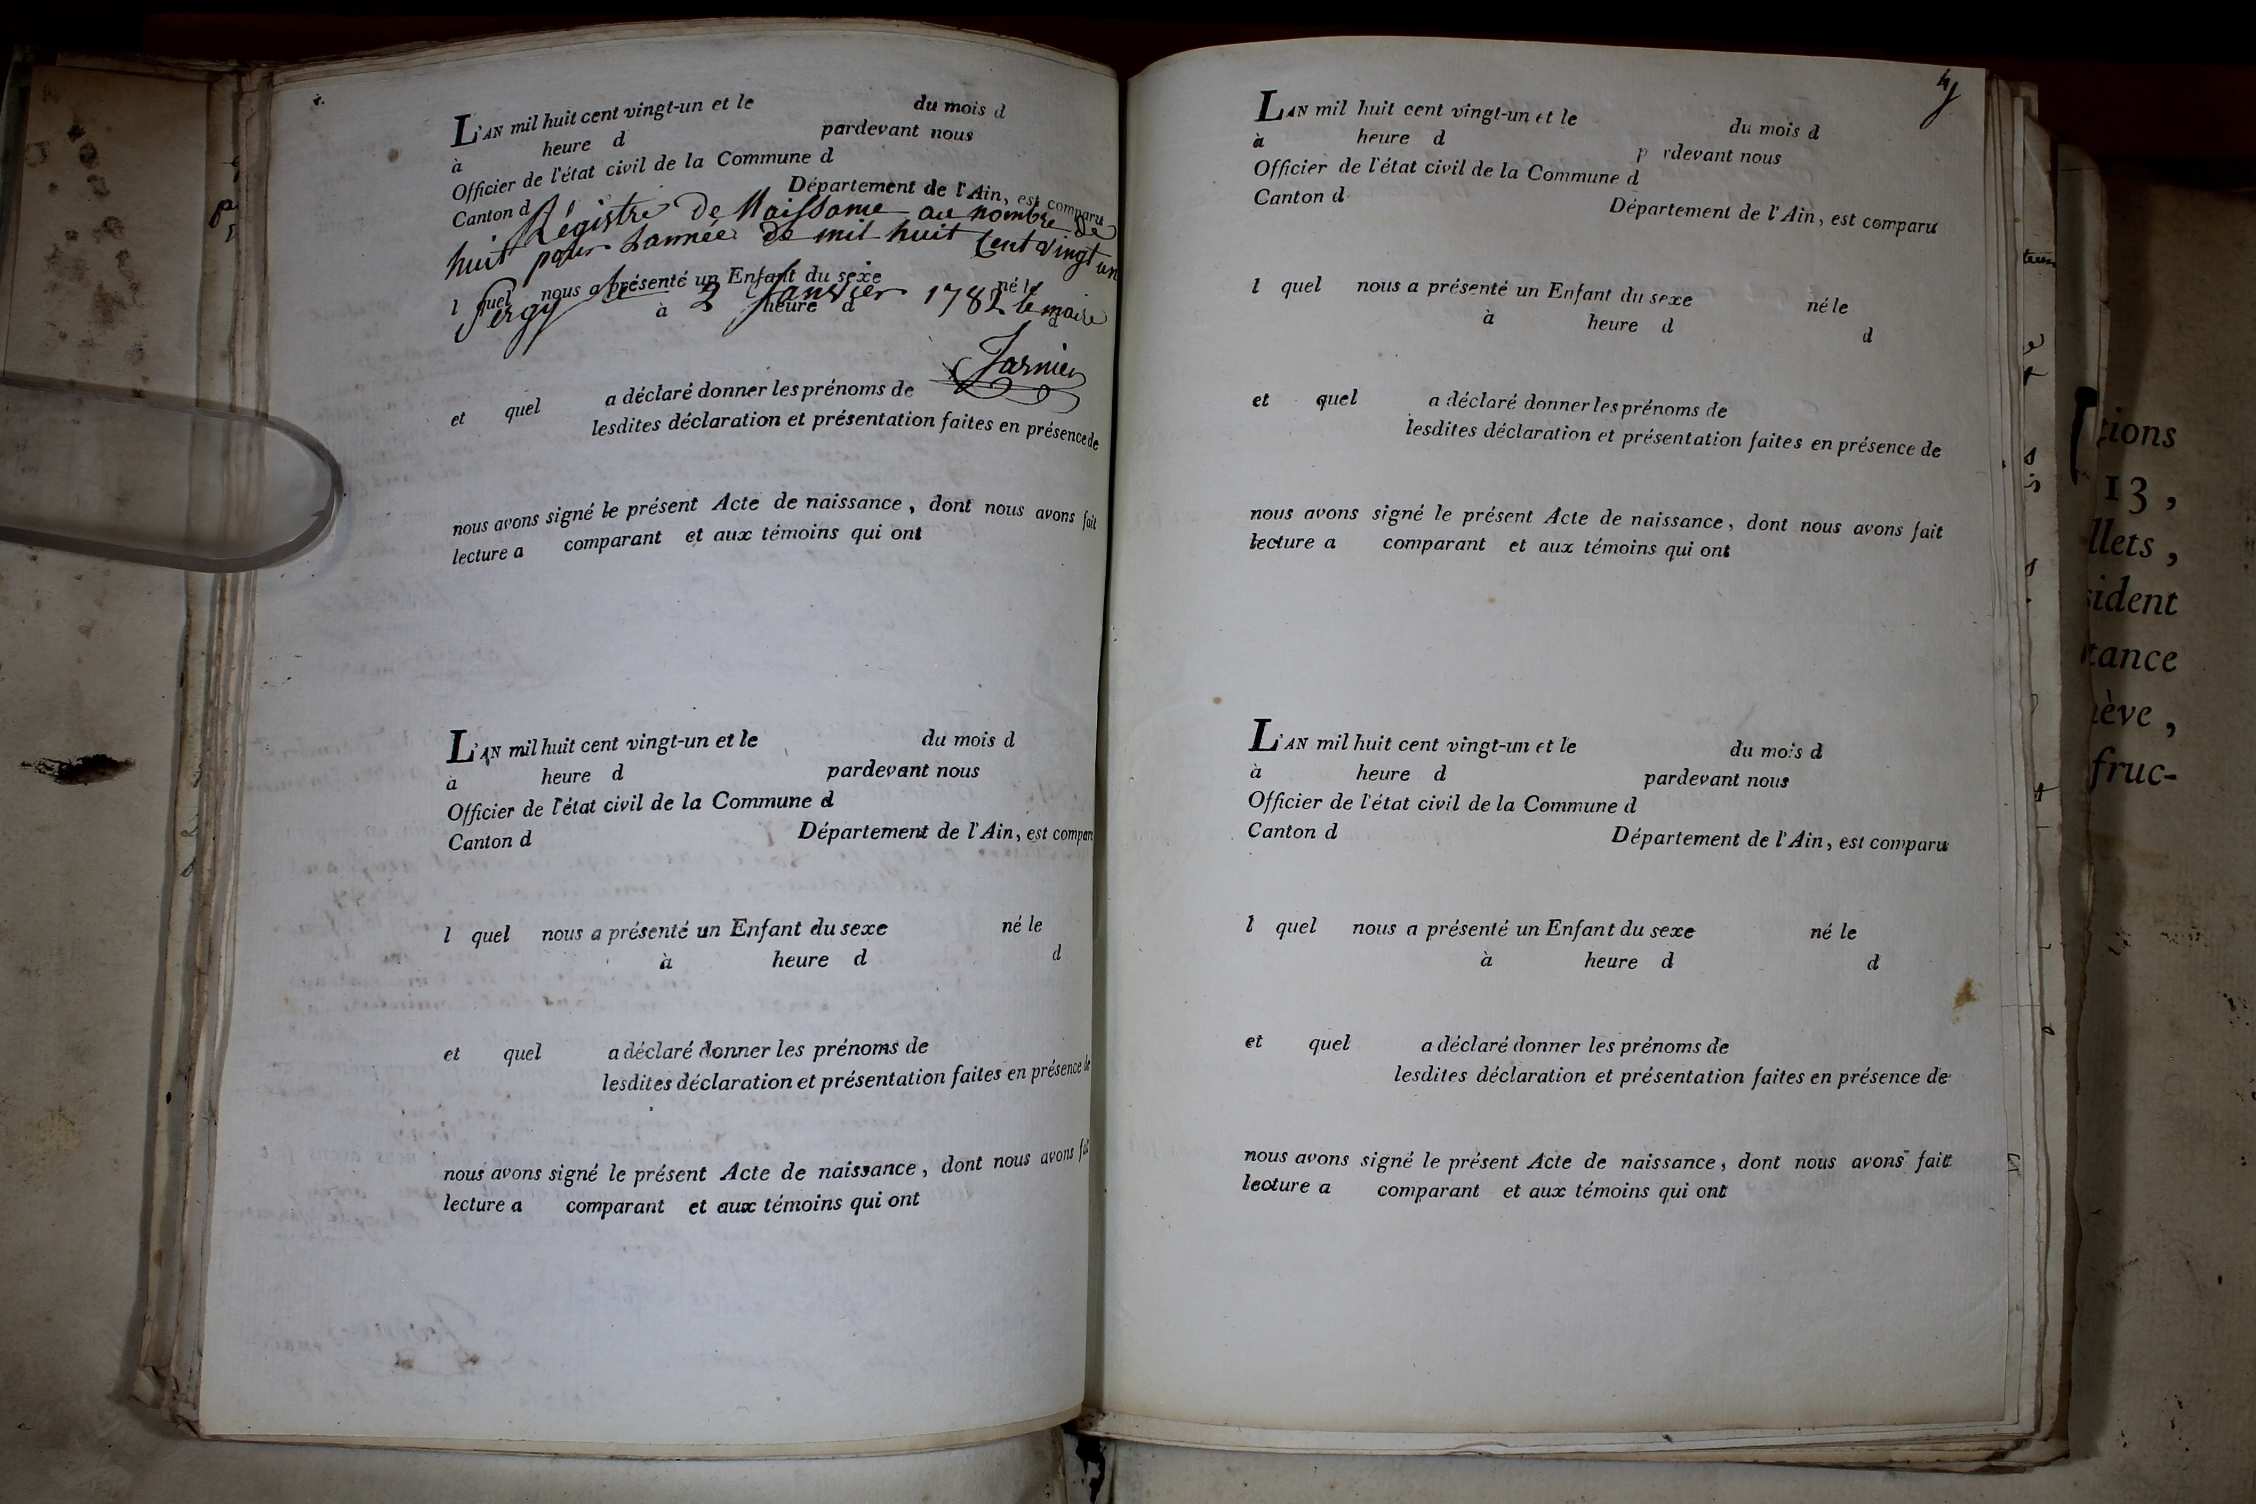 L'AN mil huit cent vingt-un et le du mois d
à heure d pardevant nous
Officier de l'état civil de la Commune d
Canton d Département de l'Ain, est comparu
Régistre de Naissance au nombre de
huit pour Lannée de mil huit Cent vingt un
l quel nous a présenté un Enfant du sexe né le
à heure d d
Pergy le 2 Janvier 1782 le maire
et quel a déclaré donner les prénoms de
lesdites déclaration et présentation faites en présence de
nous avons signé le présent Acte de naissance, dont nous avons fait
lecture a comparant et aux témoins qui ont
L'AN mil huit cent vingt-un et le du mois d
à heure d pardevant nous
Officier de l'état civil de la Commune d
Canton d Département de l'Ain, est comparu
l quel nous a présenté un Enfant du sexe né le
à heure d d
et quel a déclaré donner les prénoms de
lesdites déclaration et présentation faites en présence de
nous avons signé le présent Acte de naissance, dont nous avons fait
lecture a comparant et aux témoins qui ont
L'AN mil huit cent vingt-un et le du mois d
à heure d p rdevant nous
Officier de l'état civil de la Commune d
Canton d Département de l'Ain, est comparu
l quel nous a présenté un Enfant du sexe né le
à heure d d
et quel a déclaré donner les prénoms de
lesdites déclaration et présentation faites en présence de
nous avons signé le présent Acte de naissance, dont nous avons fait
lecture a comparant et aux témoins qui ont
L'AN mil huit cent vingt-un et le du mois d
à heure d pardevant nous
Officier de l'état civil de la Commune d
Canton d Département de l'Ain, est comparu
l quel nous a présenté un Enfant du sexe né le
à heure d d
et quel a déclaré donner les prénoms de
lesdites déclaration et présentation faites en présence de
nous avons signé le présent Acte de naissance, dont nous avons fait
lecture a comparant et aux témoins qui ont
tions
13,
llets,
sident
tance
nève,
fruc-